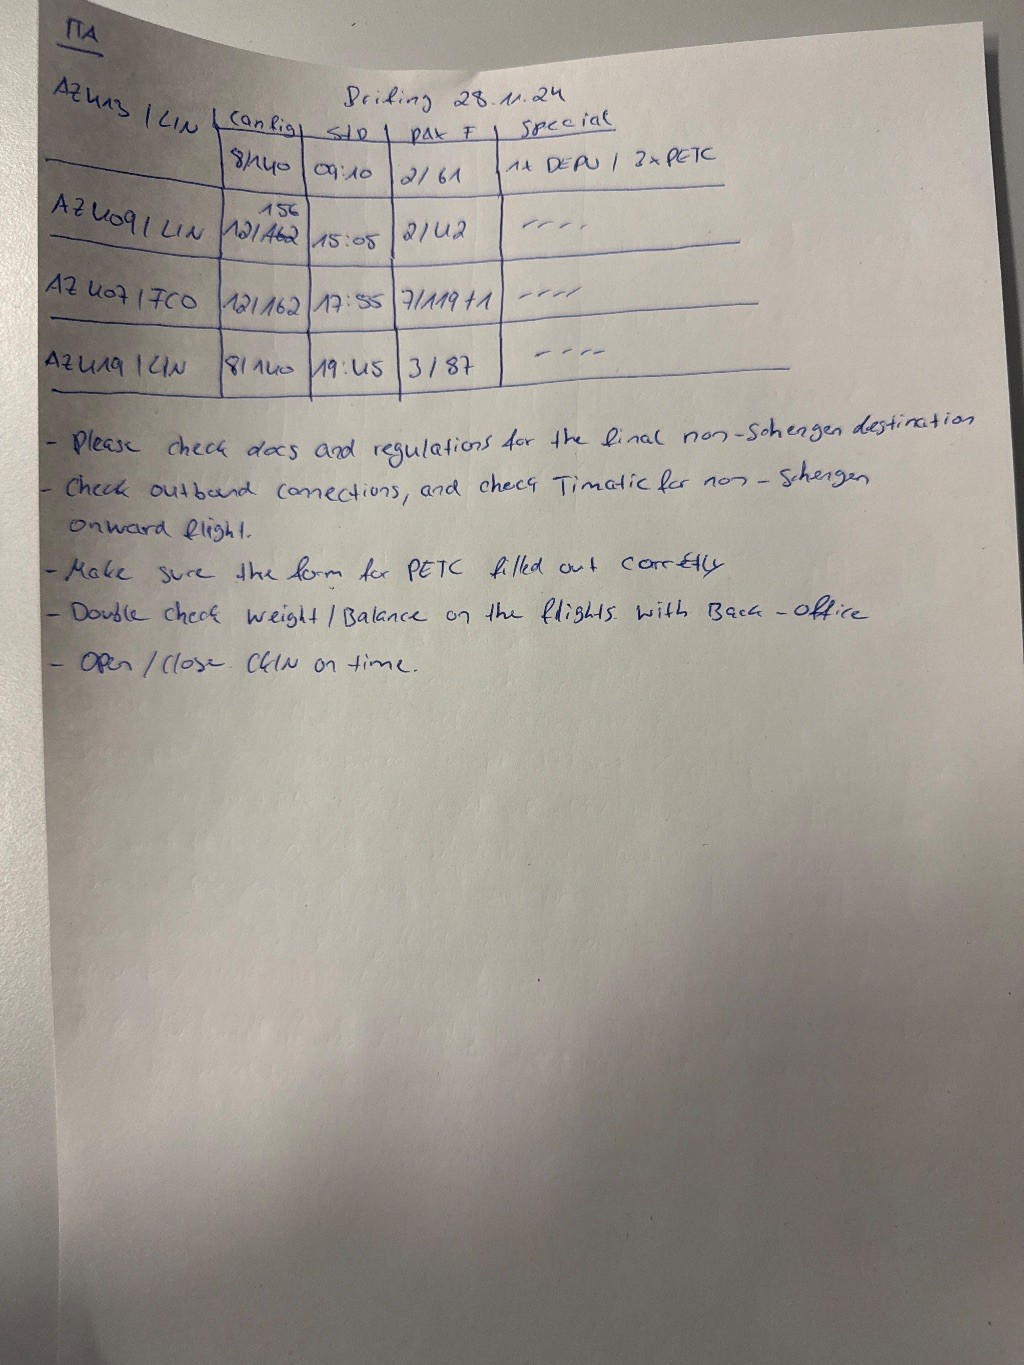 ITA
Briefing 28.11.24
AZ413 / LIN Config STD pax F Special
8/140 09:10 2/61 1x DEPU / 2xPETC
156
AZ409 / LIN 12/162 15:05 2/42 ----
AZ407 / FCO 12/162 17:55 7/119+1 ----
AZ419 / LIN 8/140 19:45 3/87 ----
- Please check docs and regulations for the final non-Schengen destination
- Check outbound connections, and check Timatic for non-Schengen
onward flight.
- Make sure the form for PETC filled out correctly
- Double check weight/Balance on the flights with Back-office
- Open/Close CKIN on time.